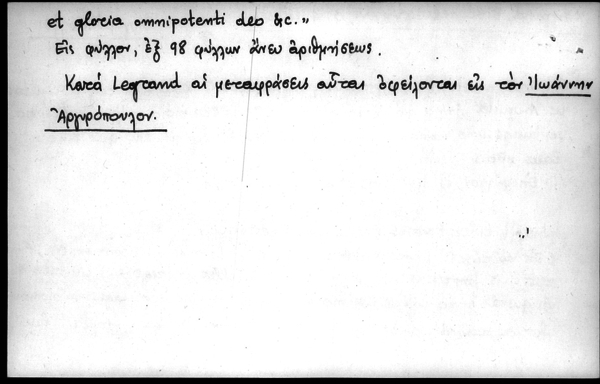 et gloria omnipotenti deo &c.»
Εἰς φύλλον, ἐξ 98 φύλλων ἄνευ ἀριθμήσεως.
Κατά Legrand αἱ μεταφράσεις αὗται ὀφείλονται εἰς τὸν Ἰωάννην
Ἀργυρόπουλον.